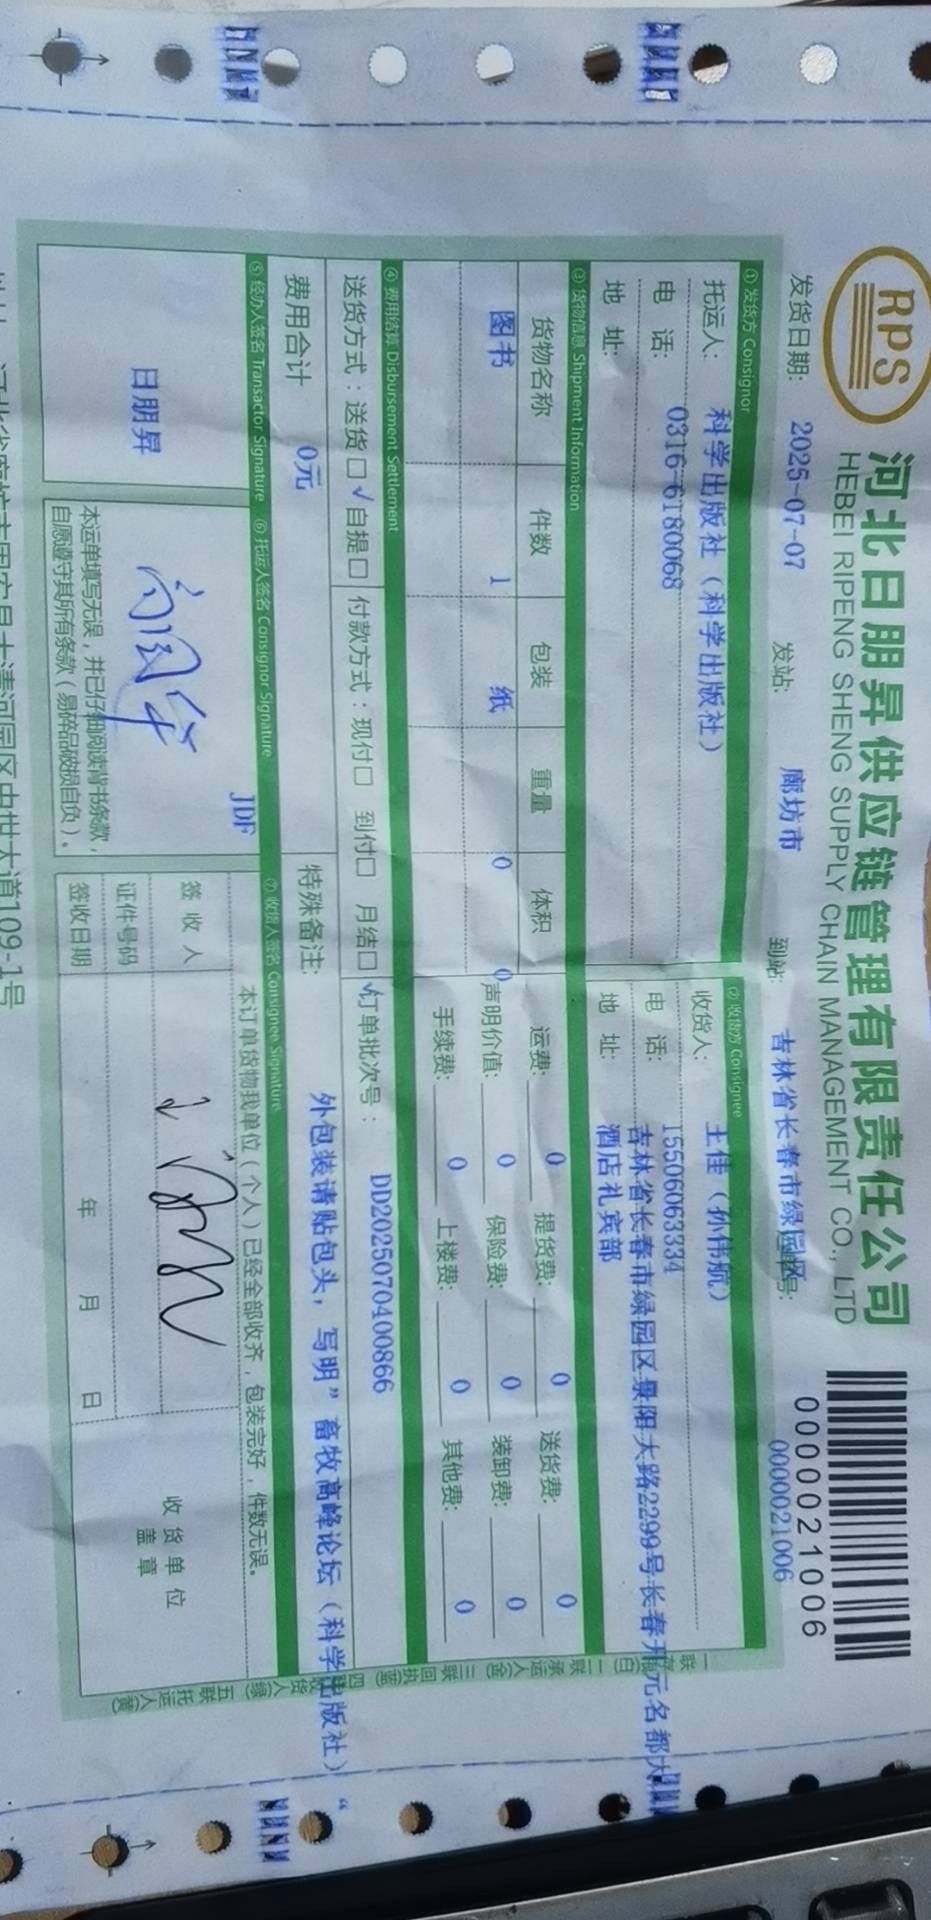 RPS
河北日朋昇供应链管理有限责任公司
HEBEI RIPENG SHENG SUPPLY CHAIN MANAGEMENT CO., LTD
0000021006
发货日期: 2025-07-07 发站: 廊坊市 到站: 吉林省长春市绿园区 单号: 0000021006
① 发货方 Consignor
托运人: 科学出版社（科学出版社）
电 话: 0316-6180068
地 址:
② 收货方 Consignee
收货人: 王佳（孙伟航）
电 话: 15506063334
地 址: 吉林省长春市绿园区景阳大路2299号长春开元名都大
酒店礼宾部
③ 货物信息 Shipment Information
货物名称 件数 包装 重量 体积
图书 1 纸 0 0
运费: 0 提货费: 0 送货费: 0
声明价值: 0 保险费: 0 装卸费: 0
手续费: 0 上楼费: 0 其他费: 0
④ 费用结算 Disbursement Settlement
送货方式：送货□√自提□ 付款方式：现付□ 到付□ 月结□√ 订单批次号： DD2025070400866
费用合计 0元
特殊备注: 外包装请贴包头，写明”畜牧高峰论坛（科学出版社）“
⑤ 经办人签名 Transactor Signature
日朋昇
⑥ 托运人签名 Consignor Signature
JDF
本运单填写无误，并已仔细阅读背书条款，
自愿遵守其所有条款（易碎品破损自负）。
⑦ 收货人签名 Consignee Signature
本订单货物我单位（个人）已经全部收齐，包装完好，件数无误。
签 收 人
证件号码
签收日期 年 月 日
收 货 单 位
盖 章